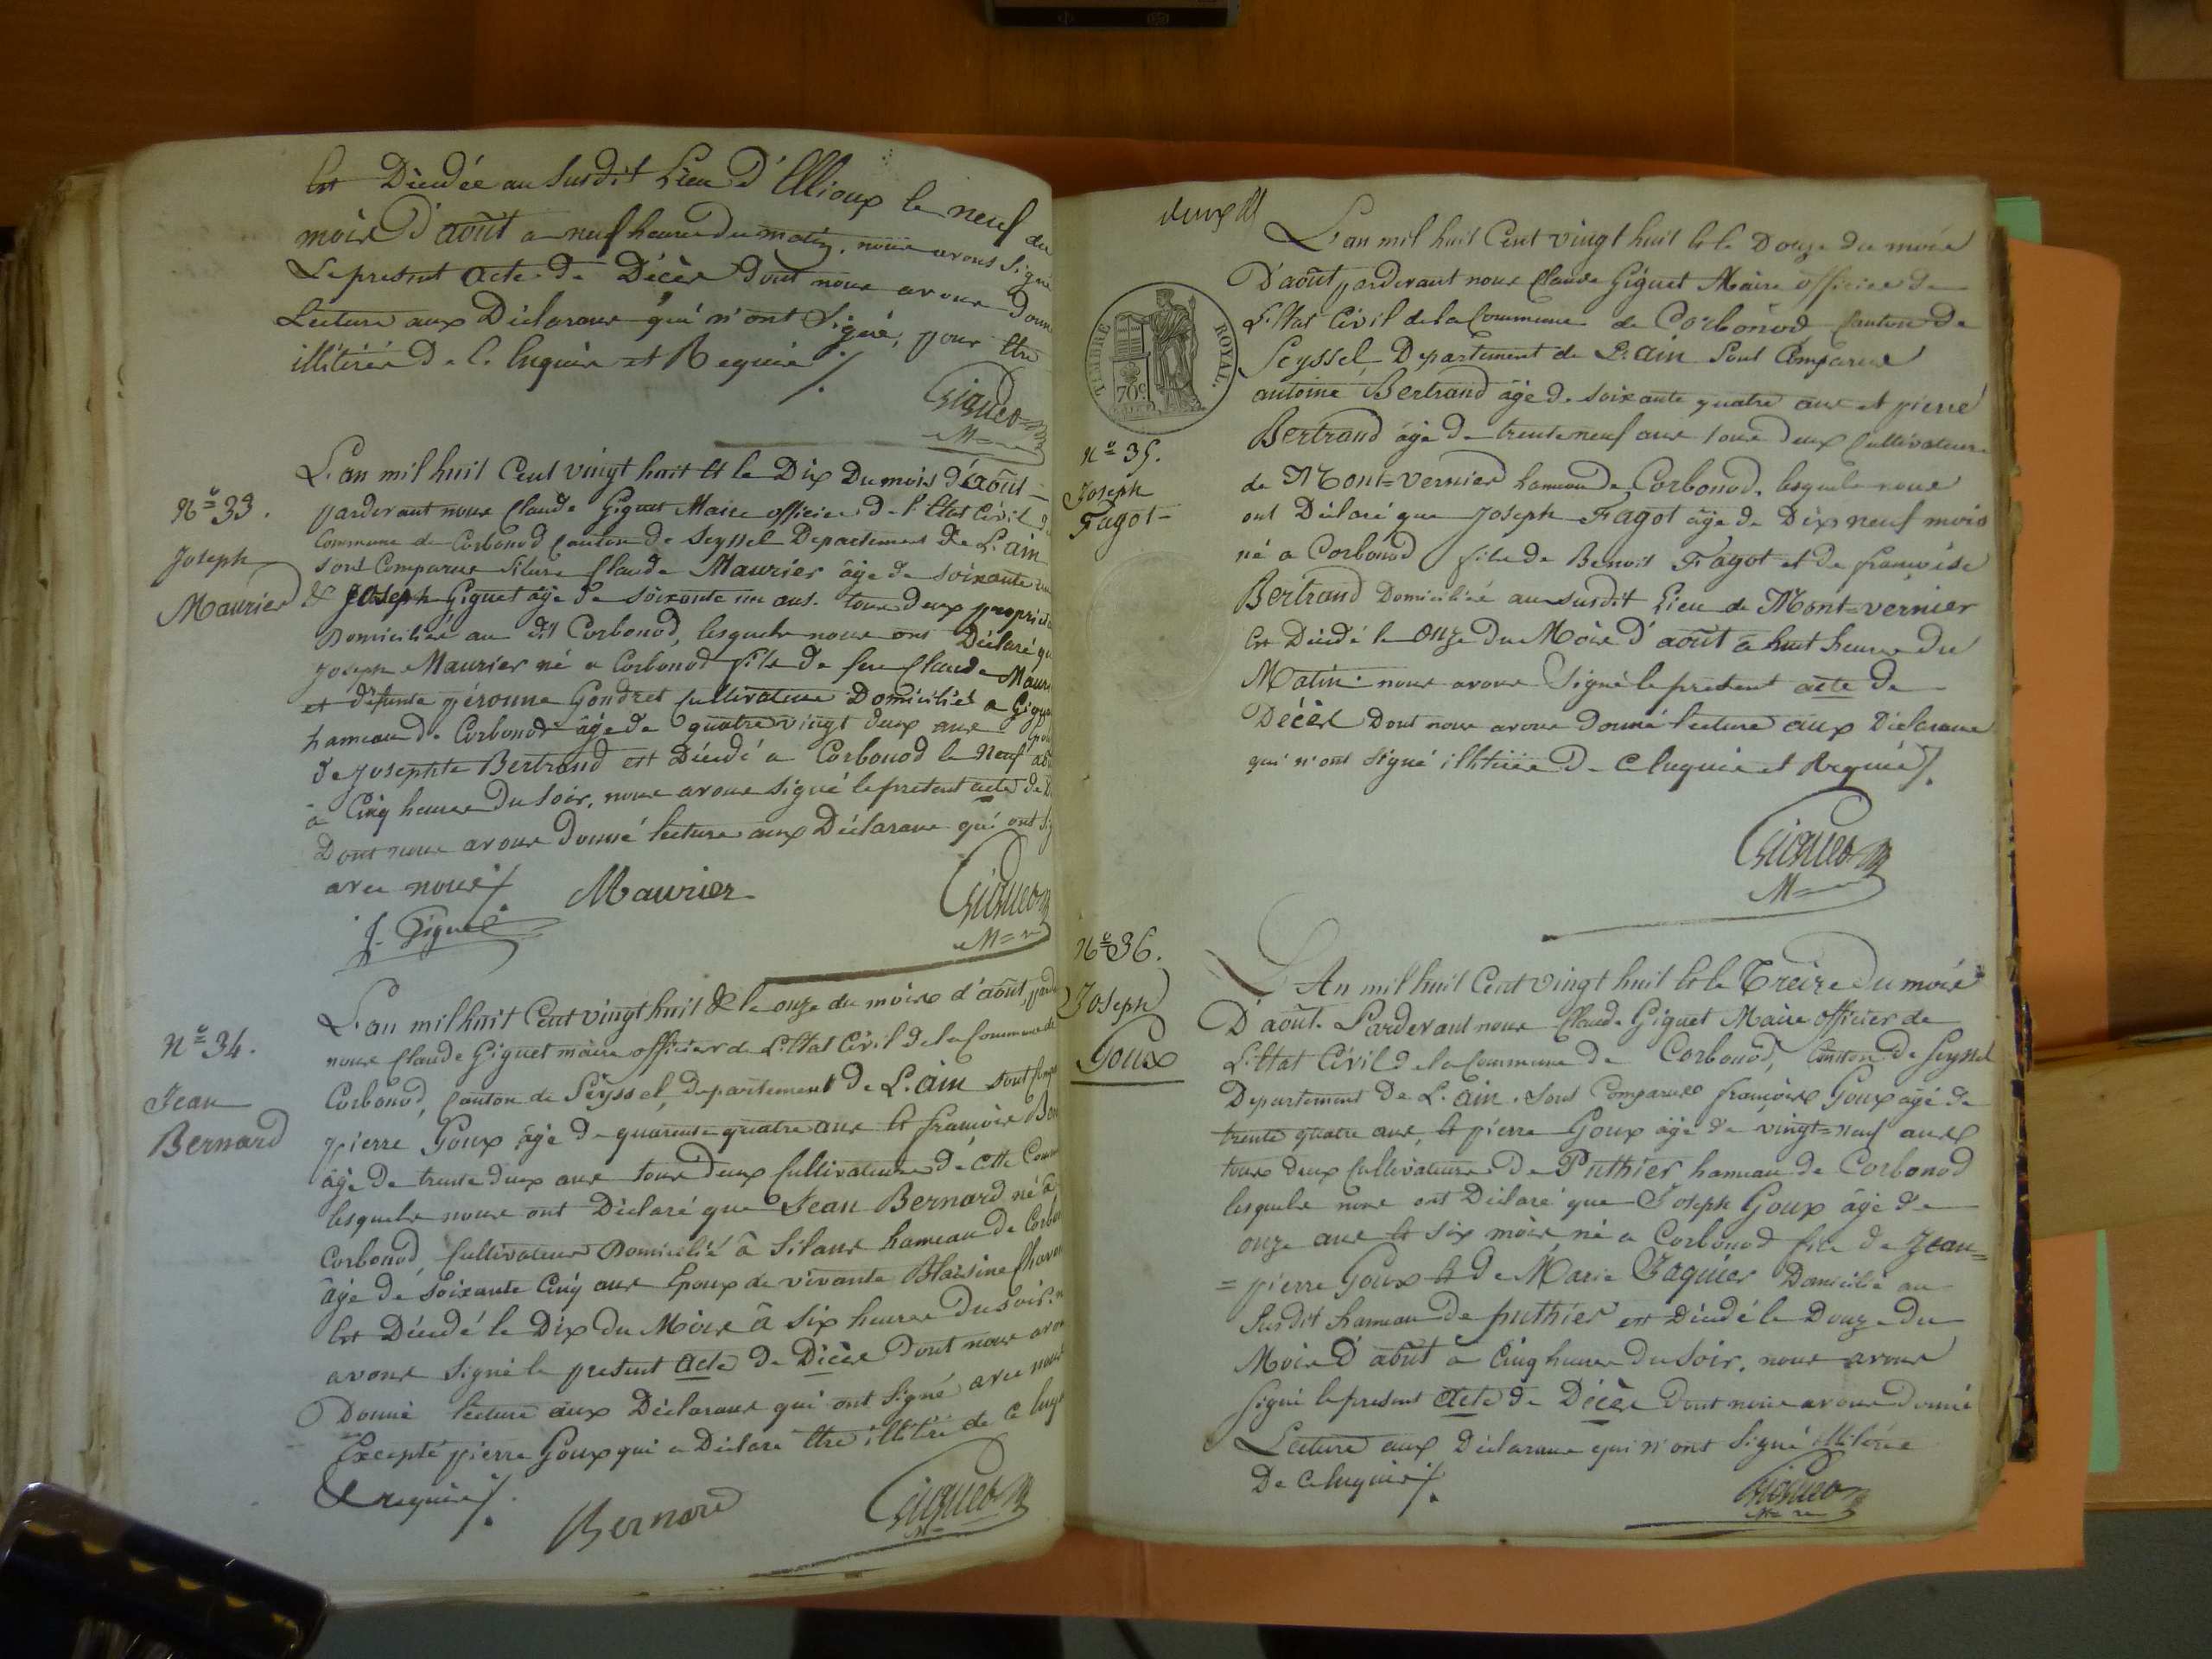 Est Décédée au susdit Lieu d'Ellioux le neuf du
mois D'août a neuf heures du matin. nous avons signé
Le present acte de Décès Dont nous avons Donné
Lecture aux Déclarans qui n'ont Signé, pour Etre
illiterés De Ce Enquis et Requis ./.
Giguet
M=
L'an mil huit Cent vingt huit Et le Dix Du mois d'août
Nº 33.
Joseph
Maurier
pardevant nous Claude Giguet Maire officier de l'Etat Civil de
Commune de Corbonod Canton de Seyssel Departement De L'ain
sont Comparus Claude Maurier âgé de soixante
& Joseph Giguet âgé de soixante un ans. tous deux proprié
Domiciliés au dit Corbonod, lesquels nous ont Déclaré que
Joseph Maurier né a Corbonod fils de feu Claude Mauri
et défunte péronne Gondret Cultivateur Domicilié a
hameau de Corbonod âgé de quatre vingt deux ans
de Josephte Bertrand est Décédé a Corbonod le neuf août
à Cinq heures Du Soir. nous avons signé le present acte de
Dont nous avons Donné lecture aux Déclarans qui ont sig
avec nous ./.
Maurier
J. Giguet
Giguet
M=re
Nº 34.
Jean
Bernard
L'an mil huit Cent vingt huit & le onze du mois d'août, parde
nous Claude Giguet maire officier de L'Etat Civil de la Commune de
Corbonod, Canton de Seyssel, departement de L'ain sont
pierre Goux âgé de quarente quatre ans Et françois Ber
âgé de trente deux ans tous Deux Cultivateurs de cette Comm
lesquels nous ont Déclaré que Jean Bernard né à
Corbonod, Cultivateur Domicilié à Silans hameau de Corbo
âgé de soixante Cinq ans Epoux de vivante Blaisine
Est Décédé le Dix Du Mois à Six heures Du soir. n
avons signé le present Acte De Décès Dont nous avon
Donné lecture aux Déclarans qui ont signé avec nous
Excepté pierre Goux qui a Déclaré Etre illitéré de Ce Enqu
& requis ./.
Bernard
Giguet
M=
deux ff
TIMBRE ROYAL.
70 c
L'an mil huit Cent vingt huit Et le Douze du mois
D'août pardevant nous Claude Giguet Maire officier de
L'Etat Civil de la Commune de Corbonod Canton De
Seyssel, Departement de L'ain Sont Comparus
antoine Bertrand âgé de soixante quatre ans et pierre
Nº 35.
Joseph
Fagot
Bertrand âgé de trente neuf ans tous deux Cultivateurs
de Mont=vernier hameau de Corbonod. lesquels nous
ont Déclaré que Joseph Fagot âgé de Dix neuf mois
né a Corbonod fils de Benoit Fagot et de françoise
Bertrand Domicilié au susdit Lieu de Mont=vernier
Est Décédé le onze Du Mois d'août à huit heures Du
Matin. nous avons Signé le présent acte de
Décès Dont nous avons Donné lecture aux Déclarans
qui n'ont signé illitérés De Ce Enquis et Requis ./.
Giguet
M=
Nº 36.
Joseph
Goux
L'An mil huit Cent vingt huit Et le Treize Du mois
D'août. Pardevant nous Claude Giguet Maire officier de
L'Etat Civil de la Commune de Corbonod, Canton de Seyssel
Departement De L'ain. Sont Comparus françois Goux âgé de
trente quatre ans, Et pierre Goux âgé de vingt=neuf ans
tous deux Cultivateurs De Puthier hameau de Corbonod
lesquels nous ont Déclaré que Joseph Goux âgé de
onze ans Et six mois né a Corbonod fils de Jean=
=pierre Goux Et De Marie Jaquier Domicilié au
Susdit hameau de puthier est Décédé le Douze du
Mois D'août à Cinq heures Du Soir. nous avons
signé le présent Acte De Décès Dont nous avons Donné
Lecture aux Déclarans qui n'ont Signé illitérés
De Ce Enquis ./.
Giguet
M=re